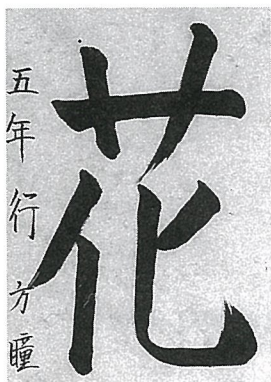 花
五年 行方瞳